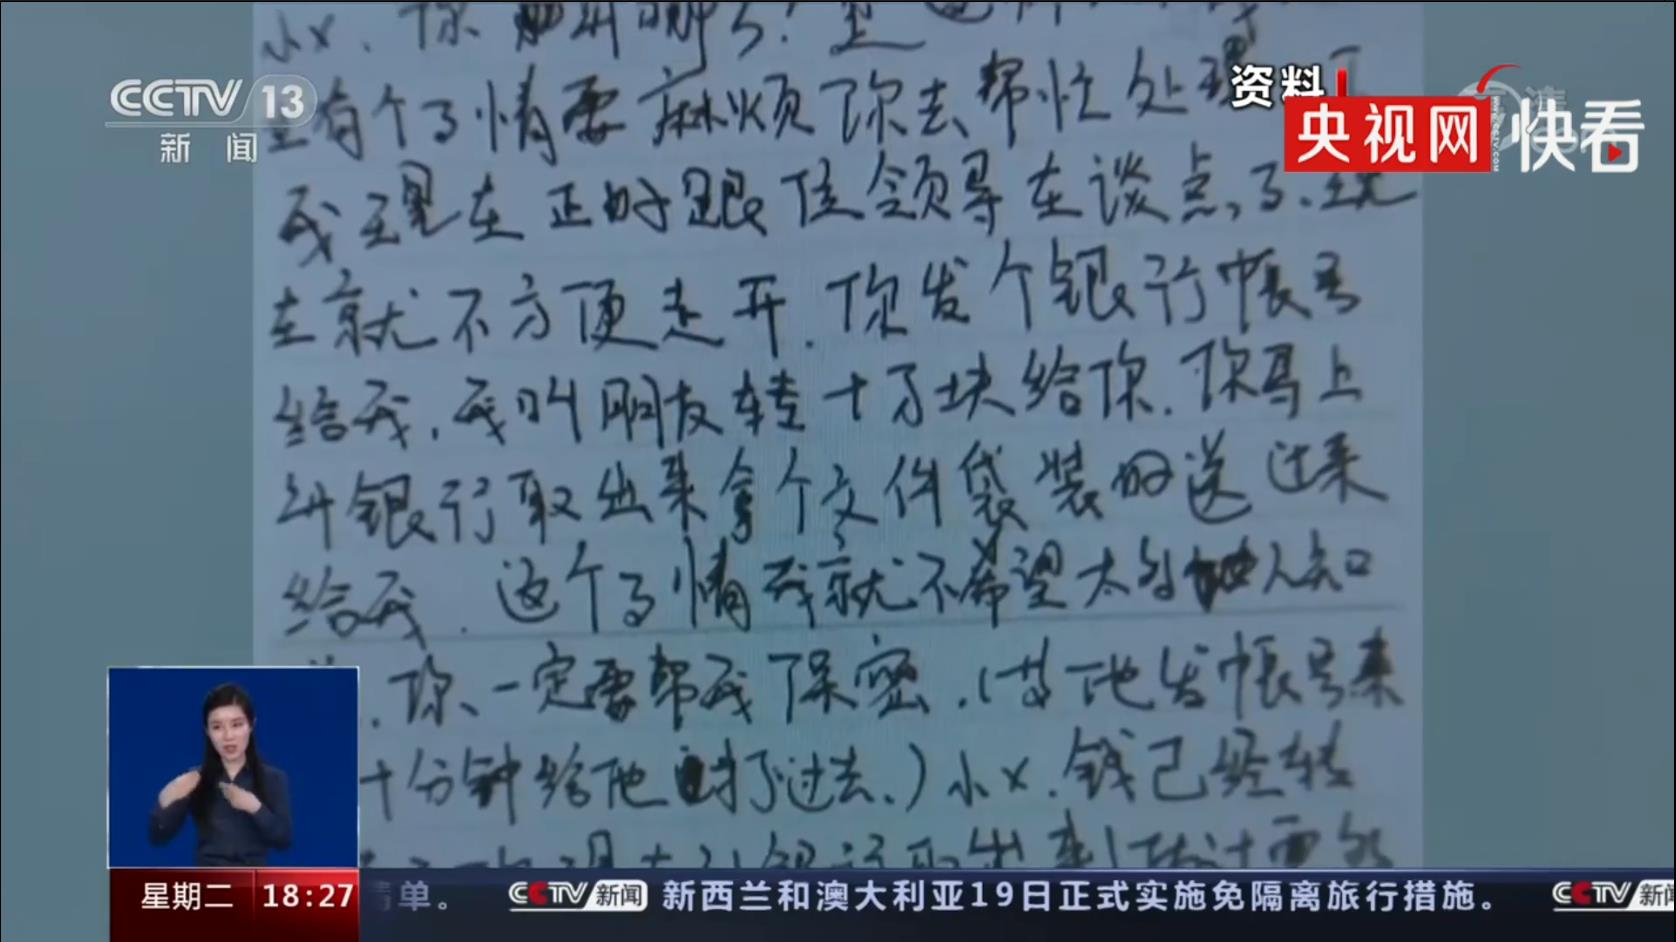 CCTV 13
新闻
资料
央视网 快看
小x、你
有个了情要麻烦你去帮忙处理
我现在正好跟位领导在谈点了、现
在就不方便走开.你发个银行帐号
给我,我叫朋友转十万块给你.你马上
到银行取出来拿个文件袋装好送过来
给我.这个了情我就不希望太多人知
.你一定要帮我保密.(等他发帐号来
十分钟给他打了过去、)小x.钱已经转
星期二 18:27 清单。 CCTV新闻 新西兰和澳大利亚19日正式实施免隔离旅行措施。 CCTV新闻